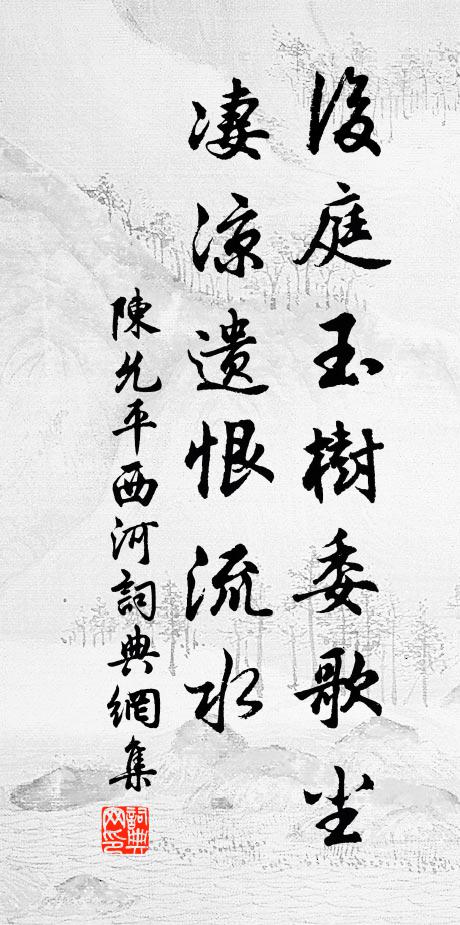 後庭玉樹委歌尘
凄涼遗恨流水
陳允平西河詞典網集
詞典网印